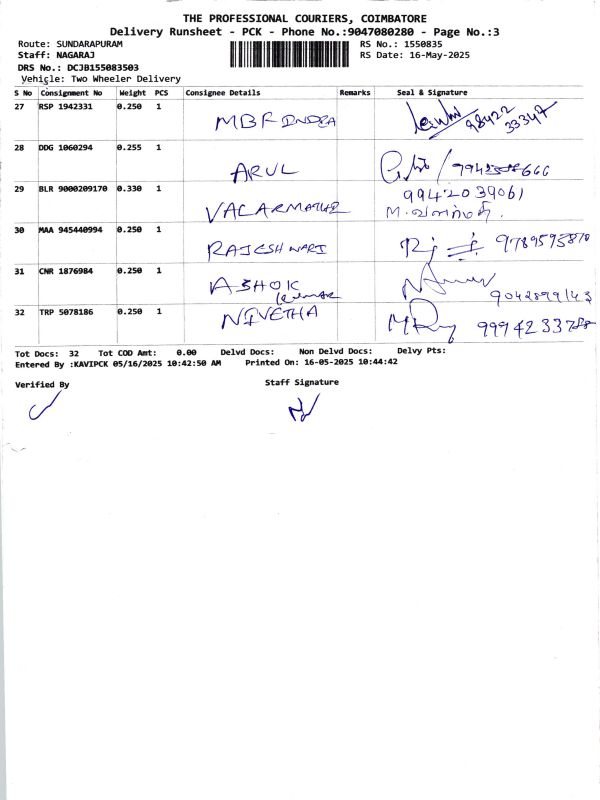 THE PROFESSIONAL COURIERS, COIMBATORE
Delivery Runsheet - PCK - Phone No.:9047080280 - Page No.:3
Route: SUNDARAPURAM RS No.: 1550835
Staff: NAGARAJ RS Date: 16-May-2025
DRS No.: DCJB155083503
Vehicle: Two Wheeler Delivery
S No Consignment No Weight PCS Consignee Details Remarks Seal & Signature
27 RSP 1942331 0.250 1 98422
33347
28 DDG 1060294 0.255 1 ARUL
29 BLR 9000209170 0.330 1 VALARMATHI 9942039061
M. வளர்மதி.
30 MAA 945440994 0.250 1 RAJESHWARI 9789593870
31 CNR 1876984 0.250 1 ASHOK
Kumar 9042899143
32 TRP 5078186 0.250 1 NIVETHA
Tot Docs: 32 Tot COD Amt: 0.00 Delvd Docs: Non Delvd Docs: Delvy Pts:
Entered By :KAVIPCK 05/16/2025 10:42:50 AM Printed On: 16-05-2025 10:44:42
Verified By Staff Signature